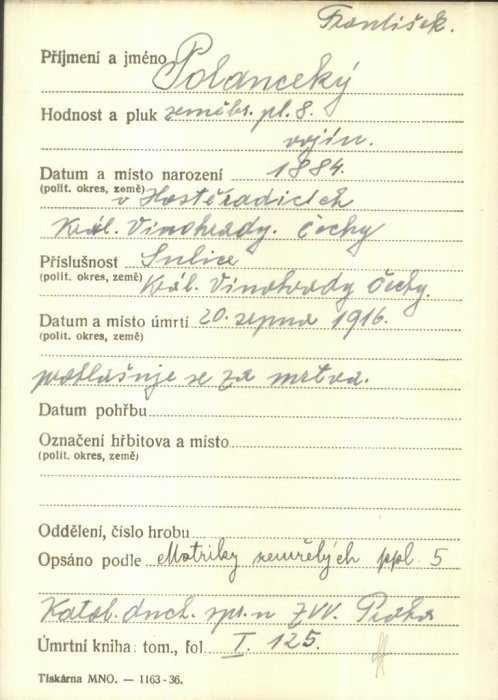 František.
Příjmení a jméno Polanecký
Hodnost a pluk zeměbr. pl. 8.
vojín.
Datum a místo narození 1884.
(polit. okres, země) v Hostěradicích
Král. Vinohrady. Čechy
Příslušnost Sulice
(polit. okres, země) Král. Vinohrady Čechy.
Datum a místo úmrtí 20. srpna 1916.
(polit. okres, země)
prohlašuje se za mrtva.
Datum pohřbu
Označení hřbitova a místo
(polit. okres, země)
Oddělení, číslo hrobu
Opsáno podle Matriky zemřelých ppl. 5
Katol. duch. spr. u ZVV. Praha
Úmrtní kniha: tom., fol I. 125.
Tiskárna MNO. — 1163-36.